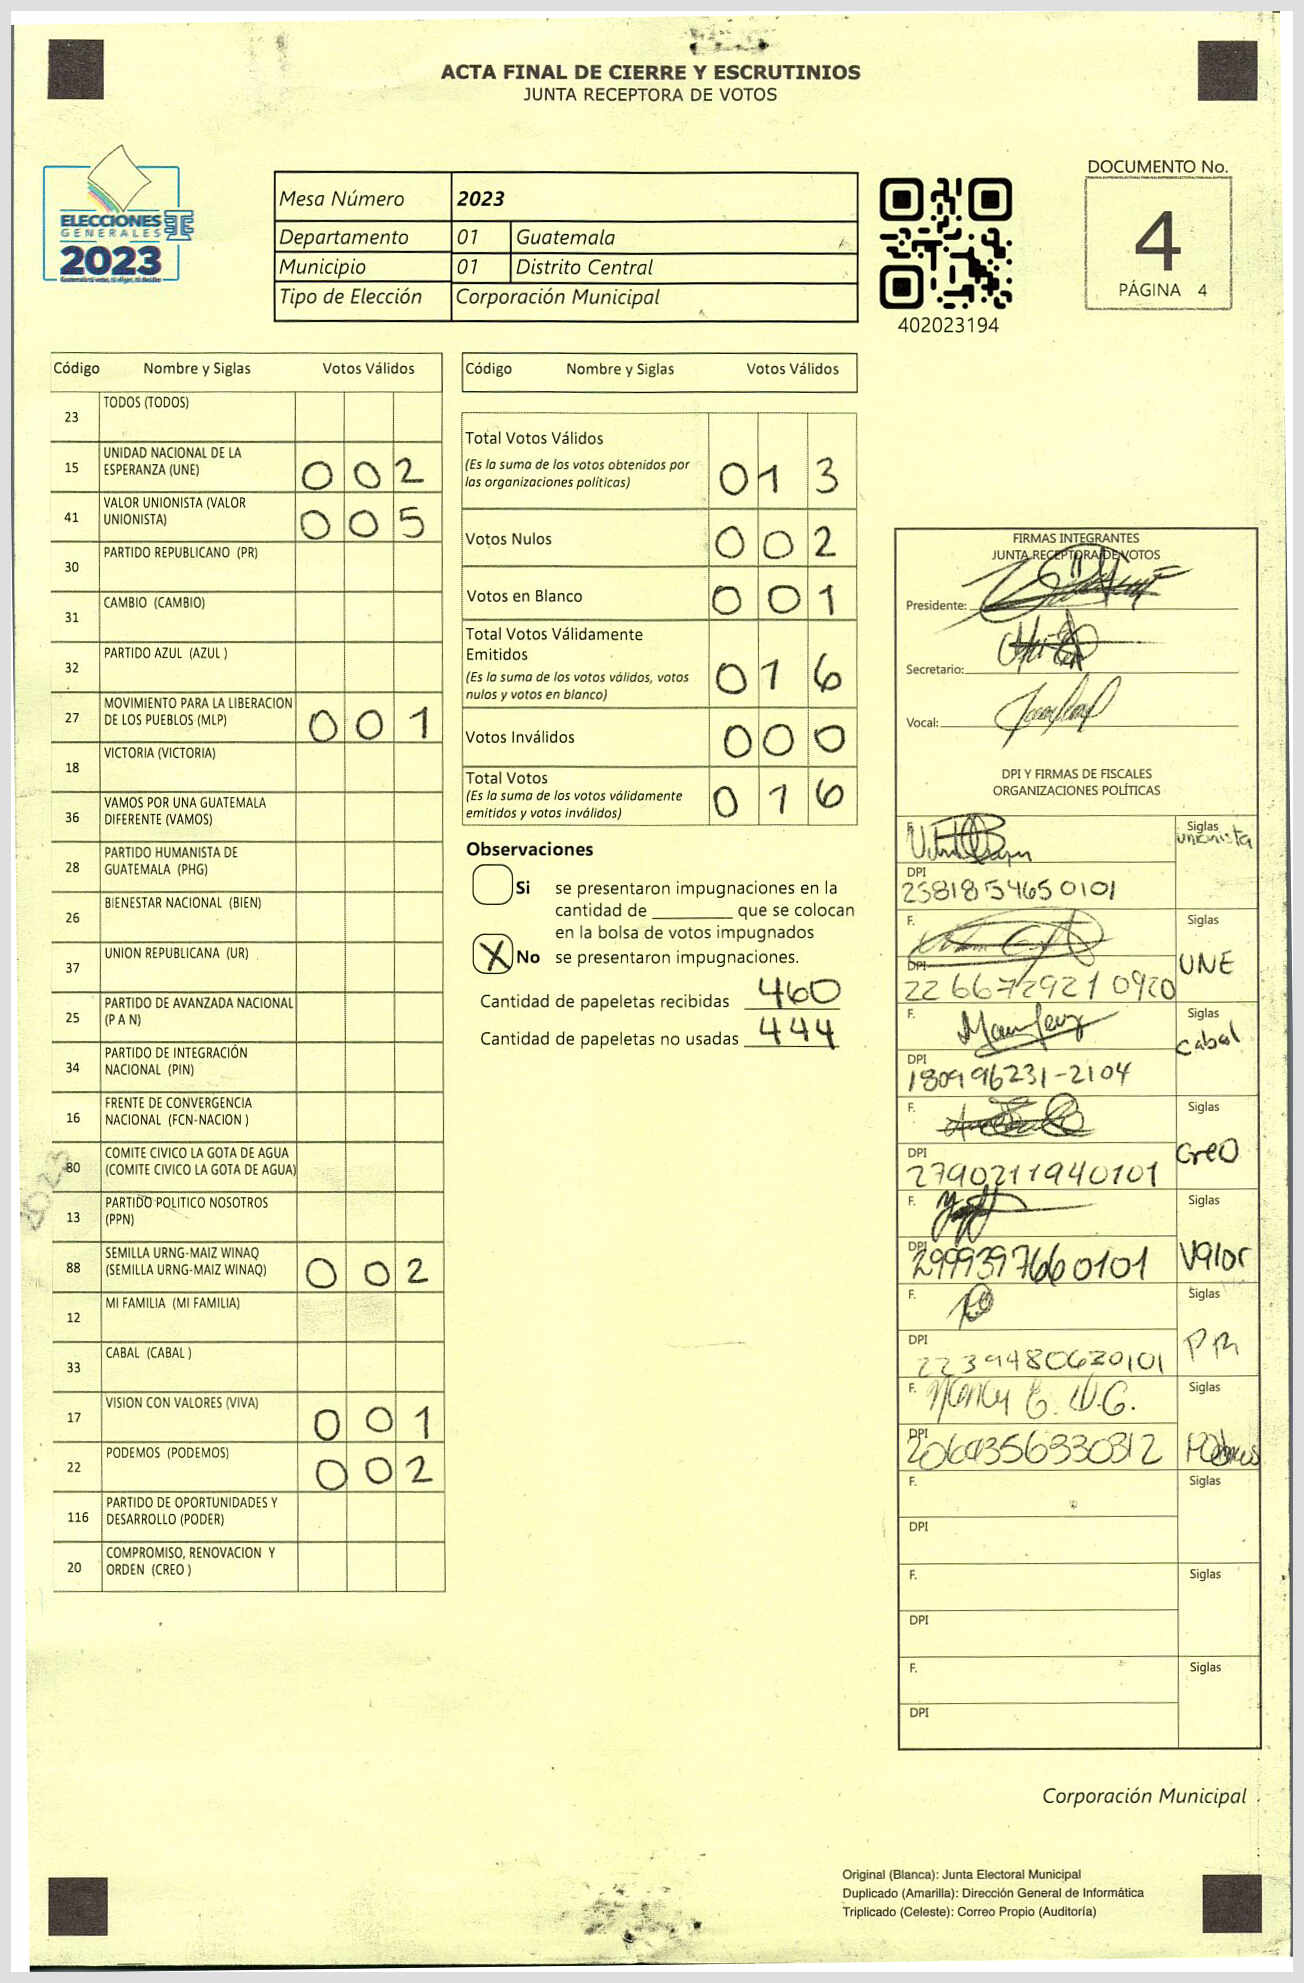 ACTA FINAL DE CIERRE Y ESCRUTINIOS
JUNTA RECEPTORA DE VOTOS
ELECCIONES
GENERALES
2023
Mesa Número 2023
Departamento 01 Guatemala
Municipio 01 Distrito Central
Tipo de Elección Corporación Municipal
402023194
DOCUMENTO No.
4
PÁGINA 4
Código Nombre y Siglas Votos Válidos
23 TODOS (TODOS)
15 UNIDAD NACIONAL DE LA
ESPERANZA (UNE) 0 0 2
41 VALOR UNIONISTA (VALOR
UNIONISTA) 0 0 5
30 PARTIDO REPUBLICANO (PR)
31 CAMBIO (CAMBIO)
32 PARTIDO AZUL (AZUL )
27 MOVIMIENTO PARA LA LIBERACION
DE LOS PUEBLOS (MLP) 0 0 1
18 VICTORIA (VICTORIA)
36 VAMOS POR UNA GUATEMALA
DIFERENTE (VAMOS)
28 PARTIDO HUMANISTA DE
GUATEMALA (PHG)
26 BIENESTAR NACIONAL (BIEN)
37 UNION REPUBLICANA (UR)
25 PARTIDO DE AVANZADA NACIONAL
(P A N)
34 PARTIDO DE INTEGRACIÓN
NACIONAL (PIN)
16 FRENTE DE CONVERGENCIA
NACIONAL (FCN-NACION )
80 COMITE CIVICO LA GOTA DE AGUA
(COMITE CIVICO LA GOTA DE AGUA)
13 PARTIDO POLITICO NOSOTROS
(PPN)
88 SEMILLA URNG-MAIZ WINAQ
(SEMILLA URNG-MAIZ WINAQ) 0 0 2
12 MI FAMILIA (MI FAMILIA)
33 CABAL (CABAL )
17 VISION CON VALORES (VIVA) 0 0 1
22 PODEMOS (PODEMOS) 0 0 2
116 PARTIDO DE OPORTUNIDADES Y
DESARROLLO (PODER)
20 COMPROMISO, RENOVACION Y
ORDEN (CREO )
Código Nombre y Siglas Votos Válidos
Total Votos Válidos
(Es la suma de los votos obtenidos por
las organizaciones políticas) 0 1 3
Votos Nulos 0 0 2
Votos en Blanco 0 0 1
Total Votos Válidamente
Emitidos
(Es la suma de los votos válidos, votos
nulos y votos en blanco) 0 1 6
Votos Inválidos 0 0 0
Total Votos
(Es la suma de los votos válidamente
emitidos y votos inválidos) 0 1 6
Observaciones
Si se presentaron impugnaciones en la
cantidad de ________ que se colocan
en la bolsa de votos impugnados
X No se presentaron impugnaciones.
Cantidad de papeletas recibidas 460
Cantidad de papeletas no usadas 444
FIRMAS INTEGRANTES
JUNTA RECEPTORA DE VOTOS
Presidente:
Secretario:
Vocal:
DPI Y FIRMAS DE FISCALES
ORGANIZACIONES POLÍTICAS
F. Siglas
unionista
DPI
2381854650101
F. Siglas
DPI UNE
2266729210920
F. Siglas
Cabal
DPI
180996231-2104
F. Siglas
DPI CreO
2790211940101
F. Siglas
DPI Valor
2999397660101
F. Siglas
DPI PR
2239480620101
F. Siglas
DPI
2064356930312
F. Siglas
DPI
F. Siglas
DPI
F. Siglas
DPI
Corporación Municipal
Original (Blanca): Junta Electoral Municipal
Duplicado (Amarilla): Dirección General de Informática
Triplicado (Celeste): Correo Propio (Auditoría)